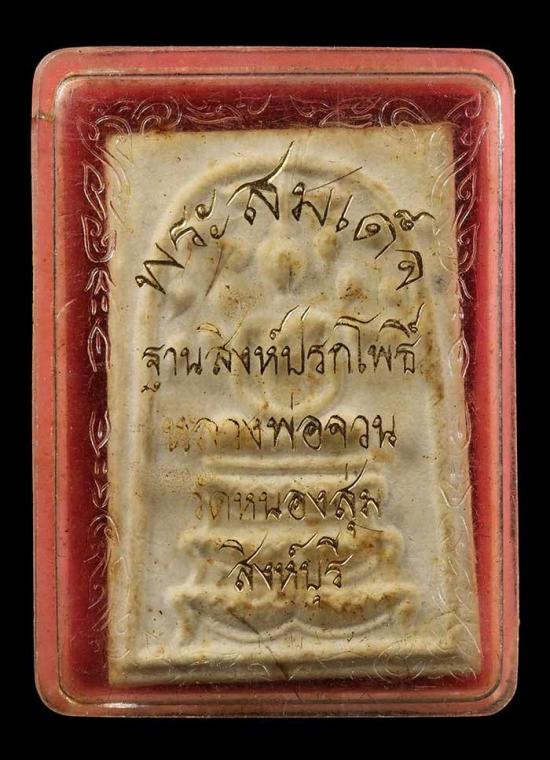 พระสมเด็จ
ฐานสิงห์ปรกโพธิ์
หลวงพ่อจวน
วัดหนองสุ่ม
สิงห์บุรี